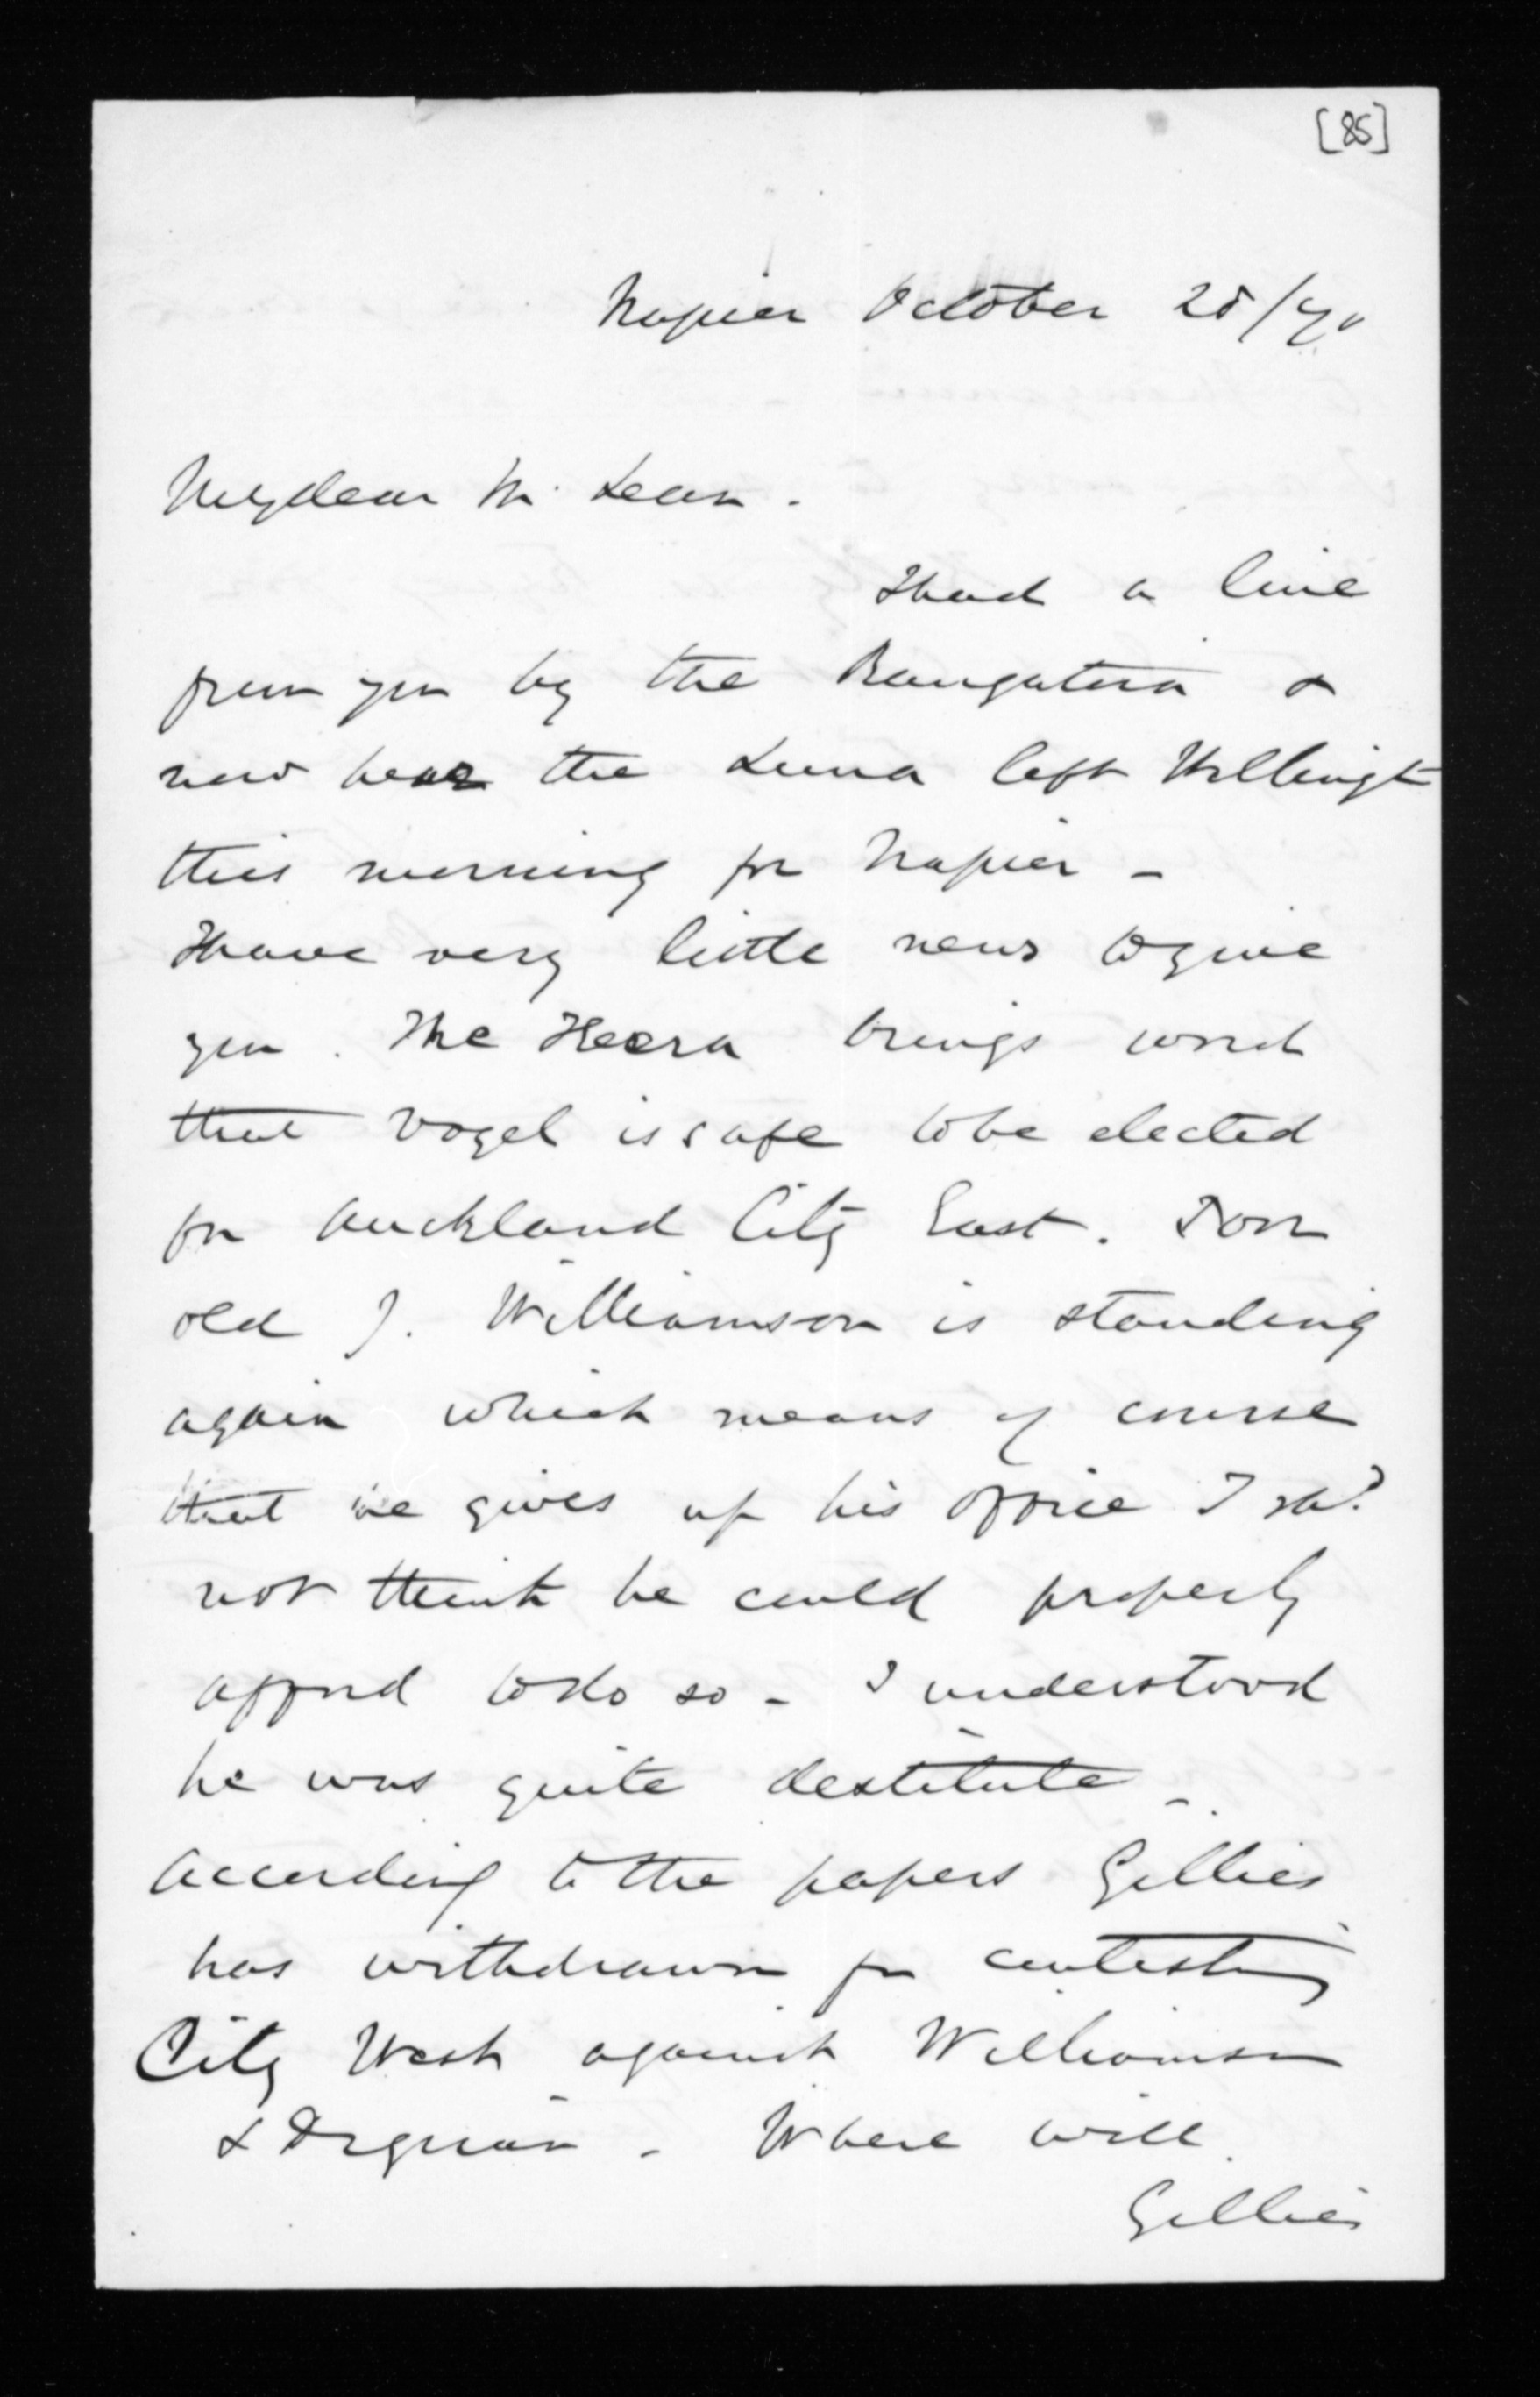 [85]
Napier October 25/70
My dear McLean.
I had a line
from you by the Rangatira &
now hear the Luna left Wellingt
this morning for Napier –
I have very little news to give
you. The Heera brings word
that Vogel is safe to be elected
for Auckland City East. Poor
old J. Williamson is standing
again which means of course
that he gives up his office I shd.
not think he could properly
afford to do so – I understood
he was quite destitute –
According to the papers Gillies
has withdrawn for contesting
City West against Williamson
& Dignan – Where will
Gillies